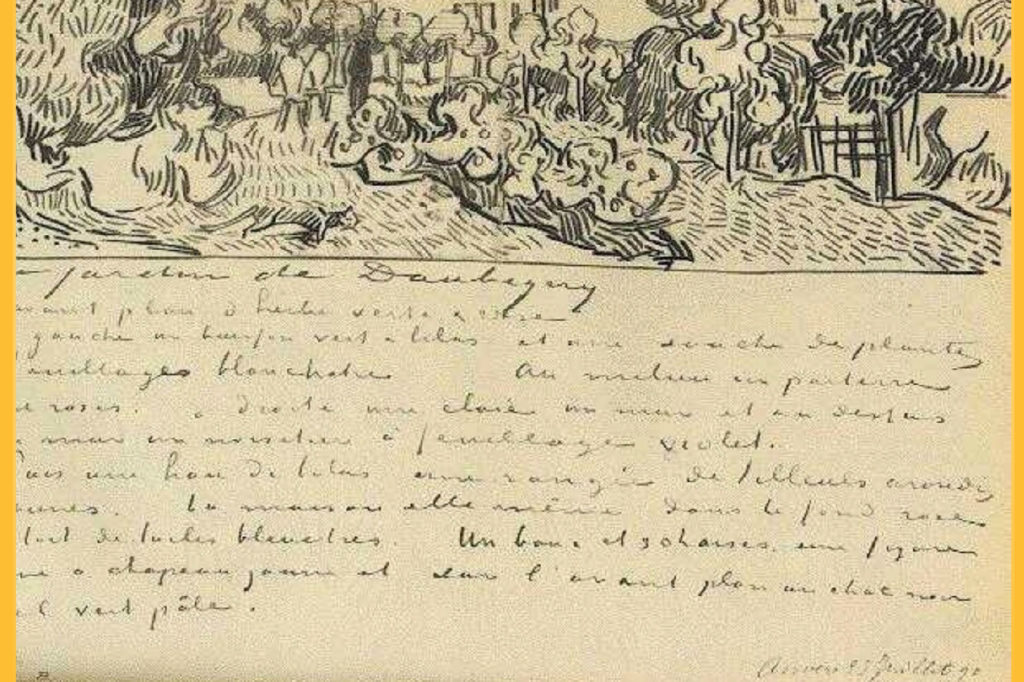 jardin de Daubigny
avant plan d'herbe verte & rose
gauche un buisson vert & lilas et une souche de plantes
feuillages blanchatres Au milieu un parterre
de roses. à droite une claie un mur et au dessus
mur un noisetier à feuillage violet.
Puis une haie de lilas une rangée de tilleuls arondis
jaunes. La maison elle même dans le fond rose
toit de tuiles bleuatres. Un banc et 3 chaises, une figure
à chapeau jaune et sur l'avant plan un chat noir
vert pâle.
Auvers 23 Juillet 90